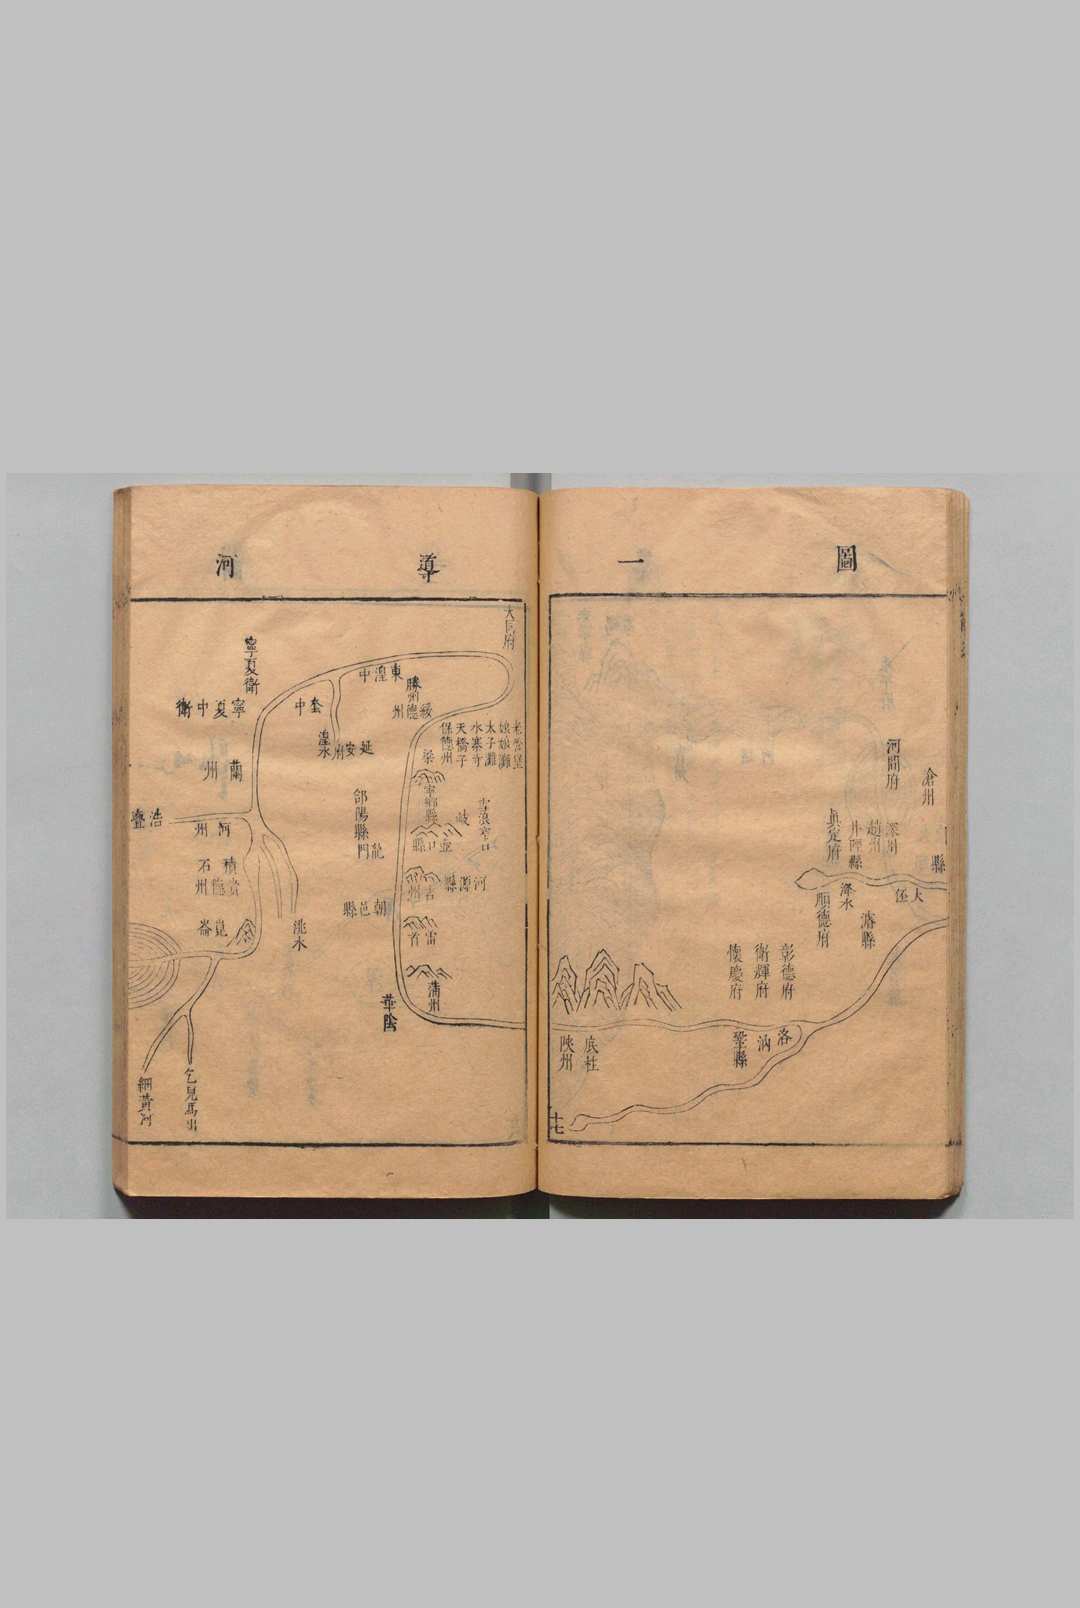 圖
一
導
河
滄州
河間府
深州
趙州
井陘縣
真定府
縣
大伾
洚水
濬縣
順德府
彰德府
衛輝府
懷慶府
洛
汭
鞏縣
底柱
陝州
十七
大同府
娘娘灘
太子灘
水寨寺
天橋子
保德州
東湟中
勝州
綏德州
梁
寧鄉縣
岐
壺口
河源縣
雷首
蒲州
華陰
延安府
郃陽縣
龍門
朝邑縣
湟水
寧夏衛
寧夏中衛
蘭州
浩亹
河州
積石
貴德州
崑崙
洮水
細黃河
乞兒馬出